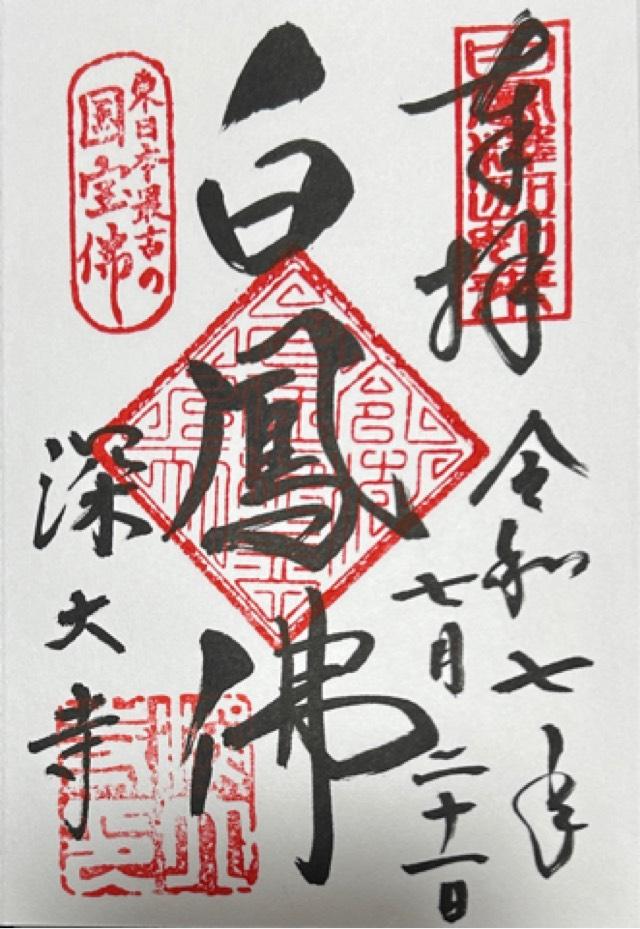 奉拝
令和七年
七月二十一日
白鳳佛
東日本最古の
国宝佛
深大寺